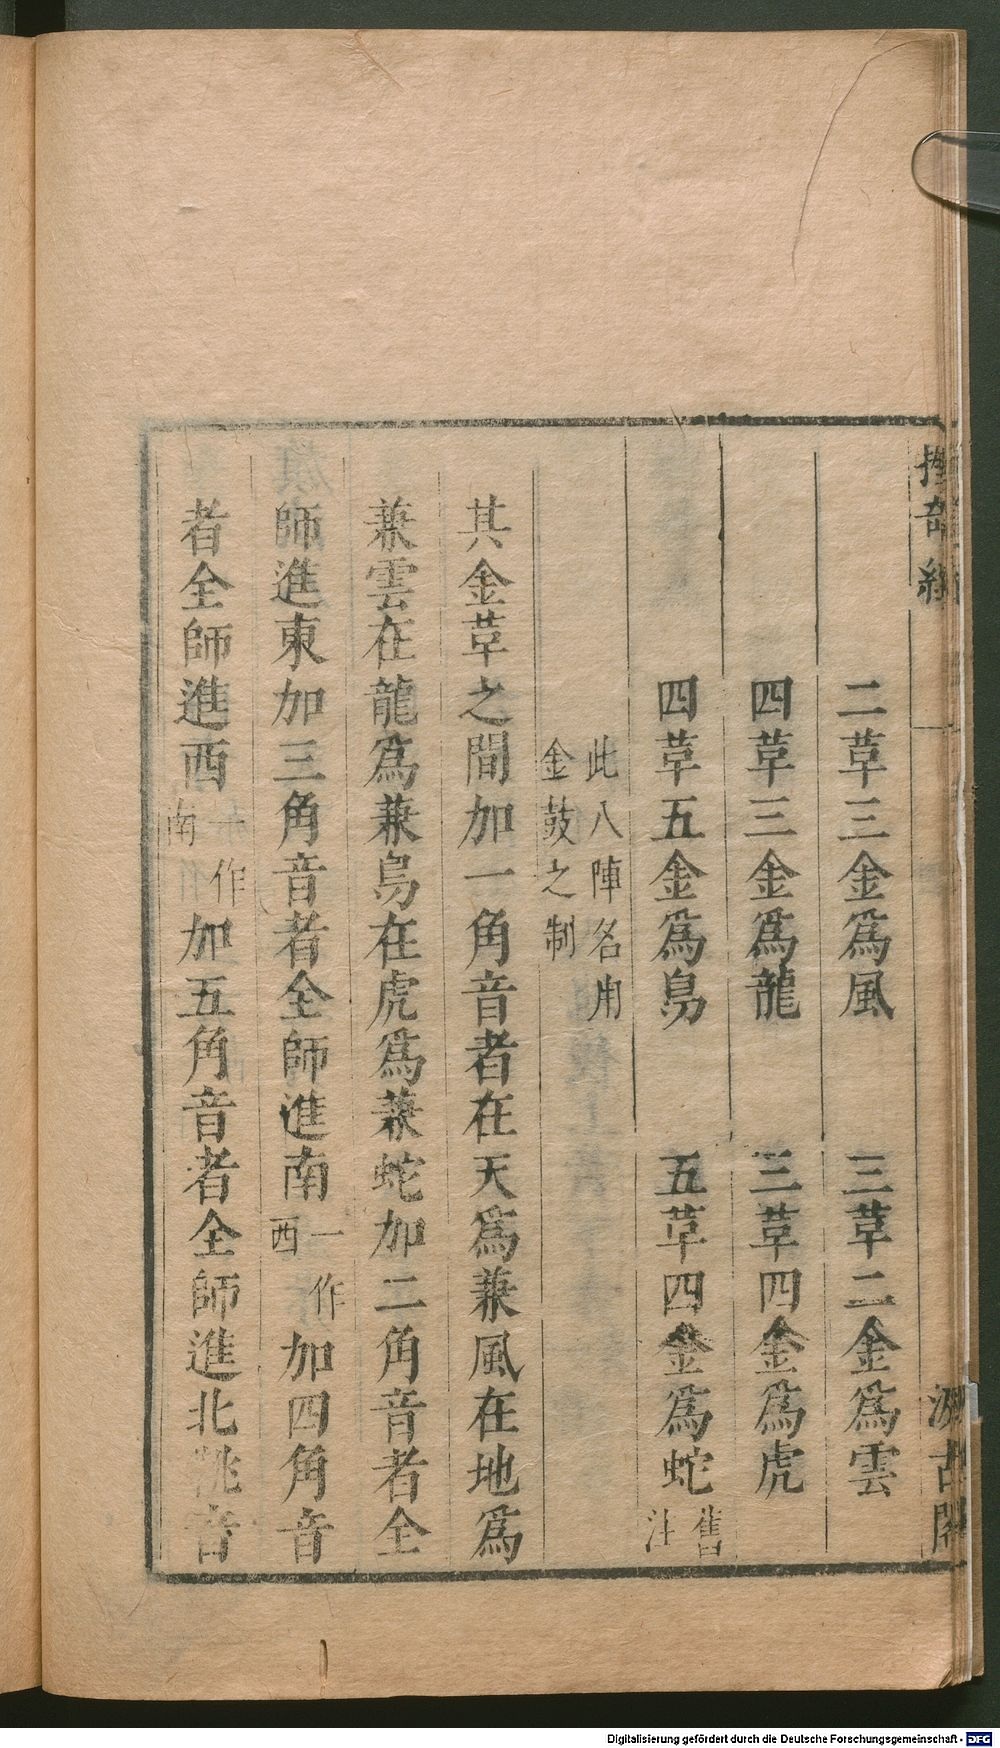 握奇經
汲古閣
二革三金爲風　三革二金爲雲
四革三金爲龍　三革四金爲虎
四革五金爲鳥　五革四金爲蛇舊注
此八陣名用
金鼓之制
其金革之間加一角音者在天爲兼風在地爲
兼雲在龍爲兼鳥在虎爲兼蛇加二角音者全
師進東加三角音者全師進南一作西加四角音
者全師進西一作南加五角音者全師進北鞉音
Digitalisierung gefördert durch die Deutsche Forschungsgemeinschaft - DFG